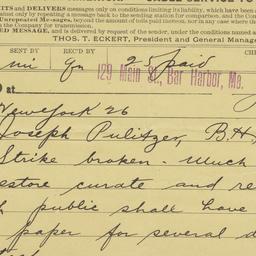 ITS and DELIVERS messages only on conditions limiting its liability, which have been
only by repeating a message back to the sending station for comparison, and the Com
Unrepeated Messages, beyond the amount of tolls paid thereon, nor in any case where th
the Company for transmission.
ED MESSAGE, and is delivered by request of the sender, under the conditions named
THOS. T. ECKERT, President and General Manage
SENT BY REC'D BY CH
25 paid
129 Main St., Bar Harbor, Me.
at
New York 26
Joseph Pulitzer, B.H,
Strike broken - Much
estore curate and re
public shall have
paper for several d